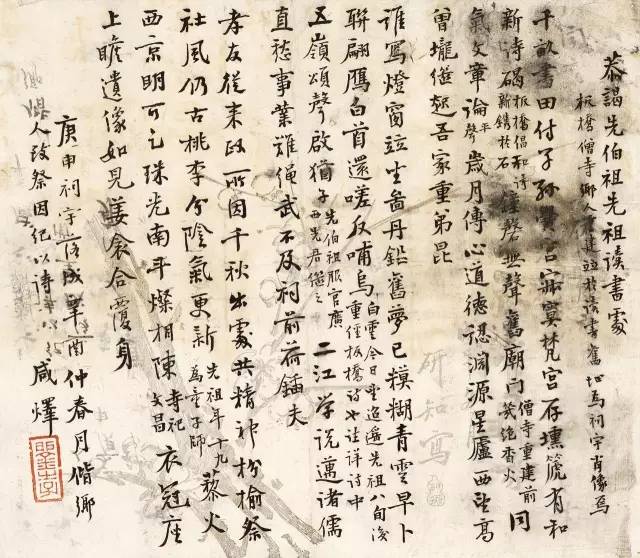 恭謁先伯祖先祖讀書處
板橋僧寺鄉人重建並於讀書舊址爲祠宇肖像焉
千畝書田付子孫黌宮寂寞梵宮存壎篪有和
新詩碣板橋倡和詩新鐫於石鐘磬無聲舊廟門僧寺重建前絶香火同
氣文章論平聲歲月傳心道德認淵源星廬西望高
曾壠繼起吾家重弟昆
誰寫燈窗竝坐啚丹鉛舊夢已糢糊青雲早卜
聯翩鴈白首還嗟反哺烏白雲今日追先祖八旬後重經板橋詩也註詳詩中
五嶺頌聲啟猶子先伯祖服官廣西先君繼之二江学説邁諸儒
直愁事業難繩武不及祠前荷鍤夫
孝友從来政所因千秋出處共精神枌榆祭
社風仍古桃李分陰氣更新先祖年十九爲童子師藜火
西京明可乞珠光南斗燦相陳寺祀文昌衣冠座
上瞻遺像如見姜衾合覆身
庚申祠宇落成辛酉仲春月偕鄉
人致祭因紀以詩咸燡